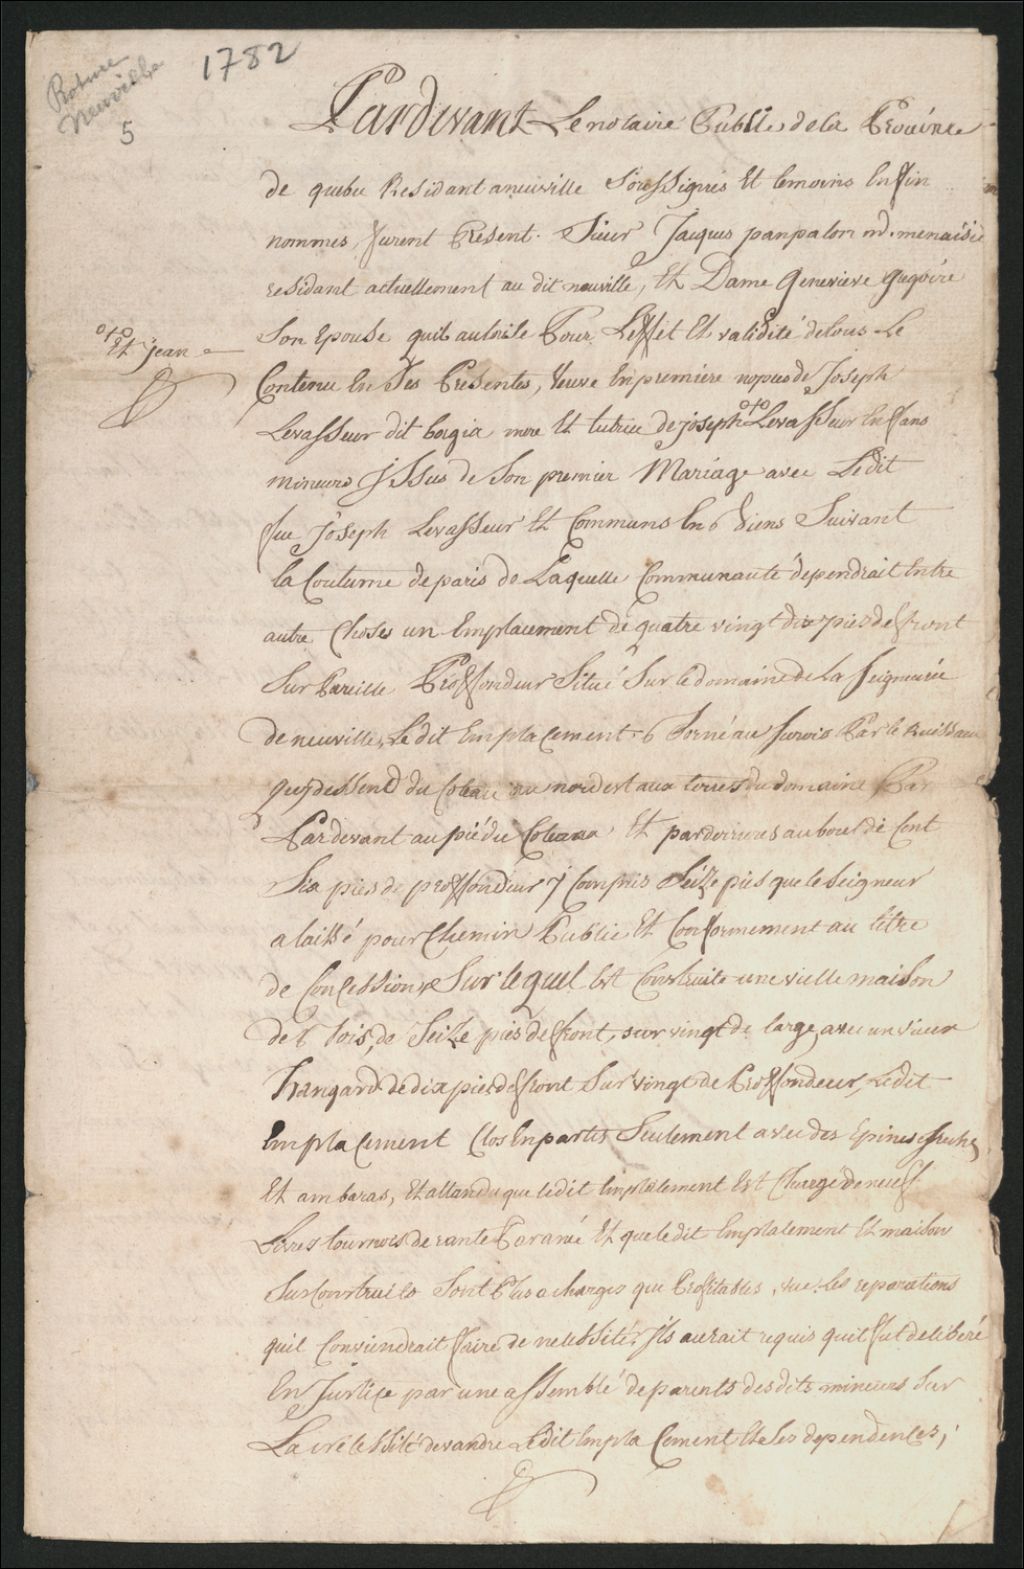 Roture
Neuville
5
1782
Pardevant Le notaire Public de la Province
de quebec Residant a neuville soussignés Et temoins En fin
nommes, furent Present. Sieur Jacques panpalon md. menuisié
residant actuellement au dit neuville, Et Dame Genevieve gregoire
Son Epouse quil autorise Pour Leffet Et validité de tous Le
Et jean
Contenu En Ses Presentes, veuve En premiere nopces de Joseph
Levasseur dit borgia mere Et tutrice de joseph Levasseur Enfans
mineurs jssus de Son premier Mariage avec Ledit
feu Joseph Levasseur Et Communs En biens Suivant
la Coutume de paris de Laquelle Communauté dependrait Entre
autre Choses un Emplacement de quatre vingt dix pies de front
Sur Pareille Proffondeur Situé Sur le domaine de La Seigneurie
de neuville, Ledit Emplacement borné au surois Par le Ruissaux
quy dessend du Coteau au nordest aux terres du domaine Par
Pardevant au pié du Coteaux Et par derrieres au bout de Cent
Six pies de proffondeur y Compris Seize pies que le Seigneur
a laissé pour Chemin Public Et Conformement au titre
de Concession, Sur lequel Est Construite une vielle maison
de bois, de Seize pies de front, sur vingt de large, avec un vieux
hangard de dix pies de front Sur vingt de Proffondeur, Ledit
Emplacement Clos En partis Seulement avec des Epines seches
Et ambaras, Et attandu que ledit Emplacement Est Chargé de neuf
Livres tournois de rante Par année Et que ledit Emplacement Et maison
Sus Construits Sont Plus a charges que Profitables, vue les reparations
quil Conviendrait faire de nécessité, Ils aurait requis quil fut deliberé
En Justice par une assemblé de parents des dits mineurs Sur
La nécessité de vandre Ledit Emplacement Et Ses dependences,